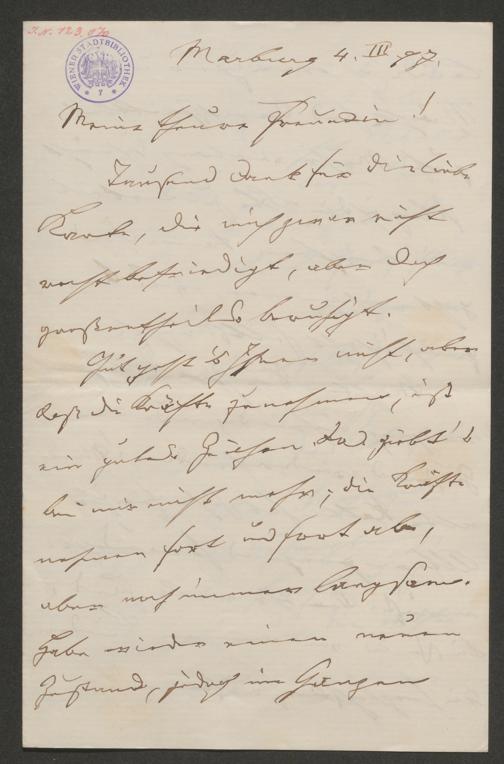 I.N. 123.070
WIENER STADTBIBLIOTHEK
Marburg 4. III 97.
Meine theure Freundin!
Tausend Dank für die liebe
Karte, die mich zwar nicht
recht befriedigt, aber doch
großentheils beruhigt.
Gut geht's Ihnen nicht, aber
daß die Kräfte zunehmen, ist
ein gutes Zeichen. Das giebt's
bei mir nicht mehr; die Kräfte
nehmen fort und fort ab,
aber noch immer langsam.
Habe wieder einen neuen
Zustand, jedoch im Ganzen